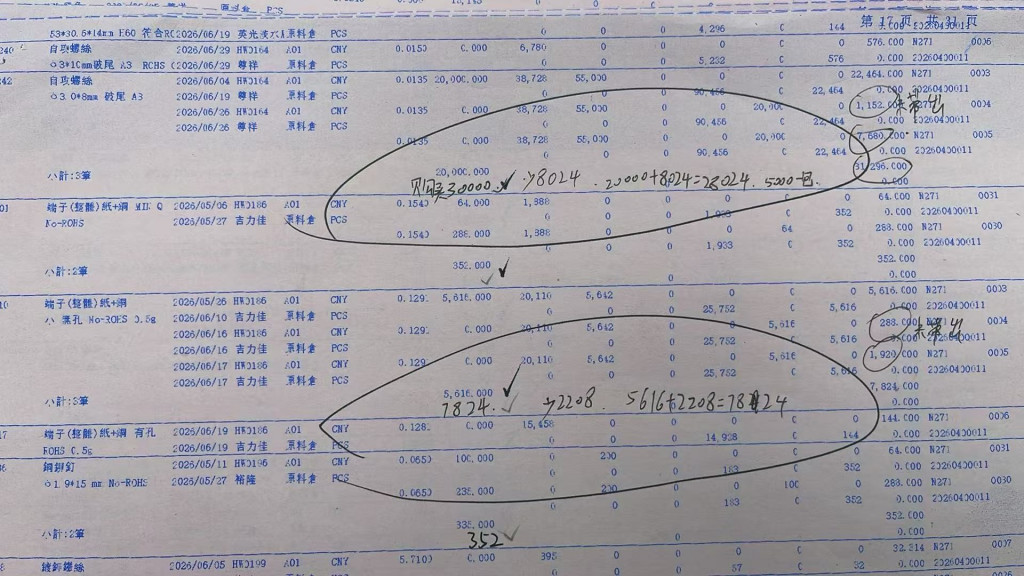 第 17 页 共 31 页
53*30.5*14mm E60 符合RC 2026/06/19 PCS 0 0 4,296 C 164 0.000 20260400011
240 自攻螺絲 2026/06/29 HW0164 A01 CNY 0.0150 C.000 6,780 0 0 C 0 576.000 N271 0006
○3*10mm破尾 A3 ROHS ( 2026/06/29 尊祥 原料倉 PCS 0 0 5,232 C 576 0.000 20260400011
242 自攻螺絲 2026/06/04 HW0164 A01 CNY 0.0135 20,000.000 38,728 55,000 0 0 0 22,464.000 N271 0003
○3.0*8mm 破尾 A3 2026/06/19 尊祥 原料倉 PCS 0 90,456 C 22,464 0.000 20260400011
2026/06/26 HW0164 A01 CNY 0.0135 C.000 38,728 55,000 0 20,000 0 1,152.000 0004
2026/06/26 尊祥 原料倉 PCS 0 90,456 C 22,464 0.000 20260400011
未带出
0.0135 C.000 38,728 55,000 0 20,000 0 7,680.000 N271 0005
0 90,456 C 22,464 0.000 20260400011
小計:3筆 20,000.000 31,296.000
0.000
购买30000 ✓ 少8024 . 20000+8024=28024. 5000一包.
01 端子(整體)紙+綱 2026/05/06 HW0186 A01 CNY 0.1540 64.000 1,888 0 0 C 0 64.000 N271 0031
No-ROHS 2026/05/27 吉力佳 原料倉 PCS 0 1,933 C 352 0.000 20260400011
0.1540 288.000 1,888 0 0 64 0 288.000 N271 0030
0 1,933 C 352 0.000 20260400011
小計:2筆 352.000 ✓ 0 352.000
0.000
10 端子(整體)紙+綱 2026/05/26 HW0186 A01 CNY 0.129 5,616.000 20,110 5,642 0 C 0 5,616.000 N271 0003
No-ROHS 0.5g 2026/06/10 吉力佳 原料倉 PCS 0 25,752 C 5,616 0.000 20260400011
2026/06/16 HW0186 A01 CNY 0.129 C.000 20,110 5,642 0 5,616 0 288.000 N271 0004
2026/06/16 吉力佳 原料倉 PCS 0 25,752 C 5,616 0.000 20260400011
未带出
2026/06/17 HW0186 A01 CNY 0.129 C.000 20,110 5,642 0 5,616 0 1,920.000 N271 0005
2026/06/17 吉力佳 原料倉 PCS 0 25,752 C 5,616 0.000 20260400011
小計:3筆 5,616.000 7,824.000
0.000
7824. ✓ 少2208 . 5616+2208=7824
17 端子(整體)紙+綱 有孔 2026/06/19 HW0186 A01 CNY 0.128 C.000 15,458 0 0 C 0 144.000 N271 0006
ROHS 0.5g 2026/06/19 吉力佳 原料倉 PCS 0 14,928 C 144 0.000 20260400011
鋼鉚釘 2026/05/11 HW0196 A01 CNY 0.0650 100.000 0 200 0 C 0 64.000 N271 0031
○1.9*15 mm No-ROHS 2026/05/27 裕隆 原料倉 PCS 0 183 C 352 0.000 20260400011
0.0650 235.000 0 200 0 100 0 288.000 N271 0030
0 183 C 352 0.000 20260400011
小計:2筆 335.000 0 352.000
352 ✓ 0.000
鍍鋅鐵絲 2026/06/05 HW0199 A01 CNY 5.7100 C.000 395 0 0 C 0 32.314 N271 0007
0 57 C 32 0.000 20260400011